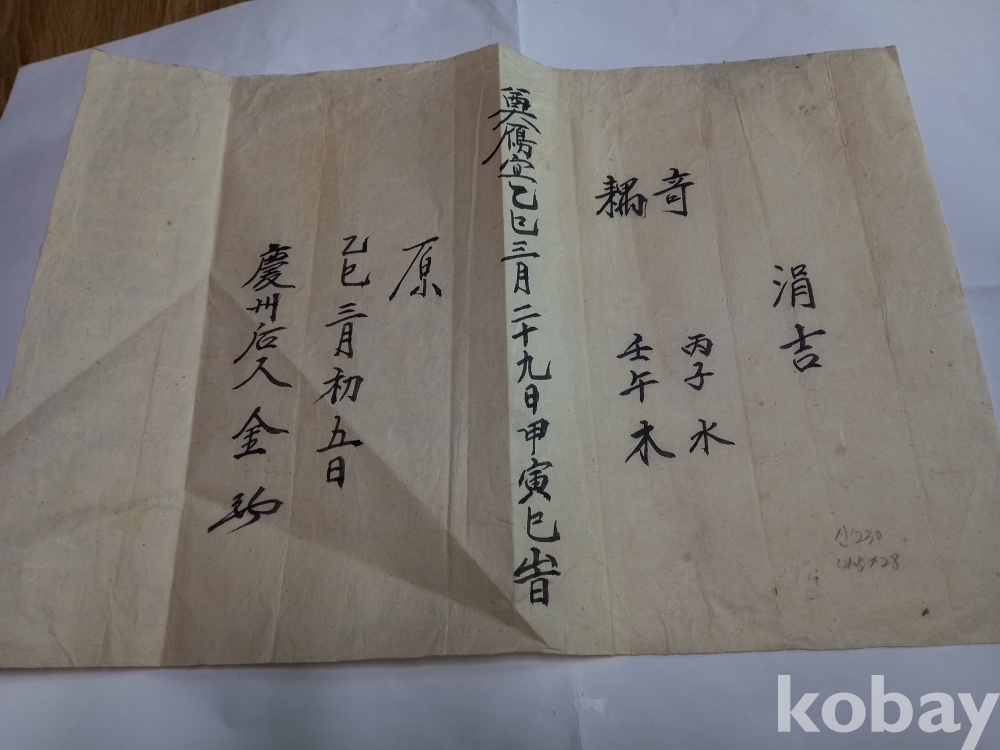 涓吉
奇 丙子 水
耦 壬午 木
奠鴈宜乙巳三月二十九日甲寅巳旹
原
乙巳 三月 初五日
慶州后人 金
신230
kobay